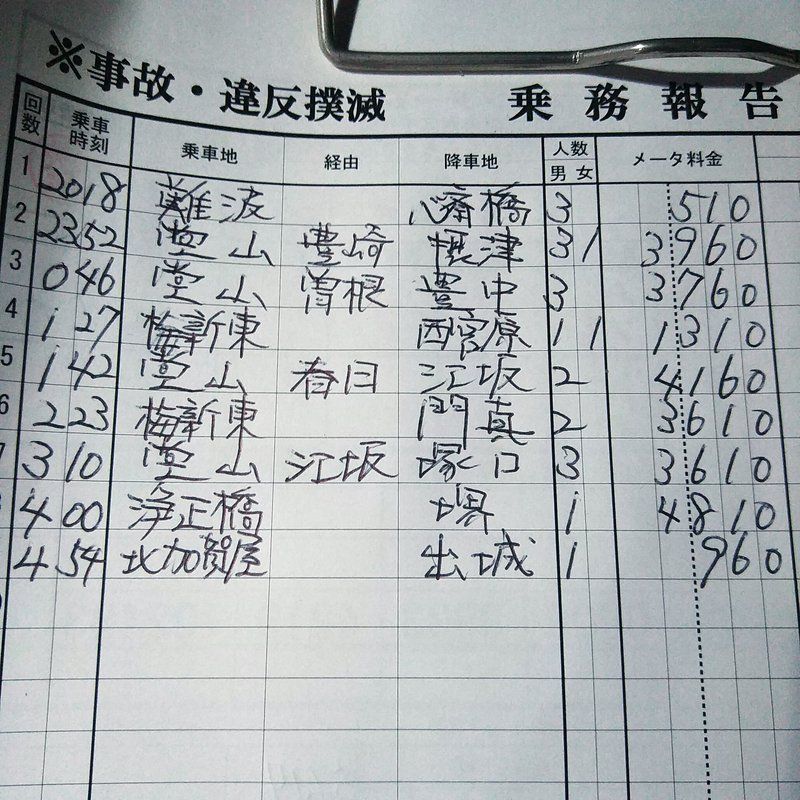 ※事故・違反撲滅 乗務報告
回数 乗車時刻 乗車地 経由 降車地 人数 男 女 メータ料金
1 2018 難波 心斎橋 3 510
2 2352 堂山 豊崎 摂津 3 1 3960
3 046 堂山 曽根 豊中 3 3760
4 127 梅新東 西宮原 1 1 1310
5 142 堂山 春日 江坂 2 4160
6 223 梅新東 門真 2 3610
7 310 堂山 江坂 塚口 3 3610
8 400 浄正橋 堺 1 4810
454 北加賀屋 出城 1 960